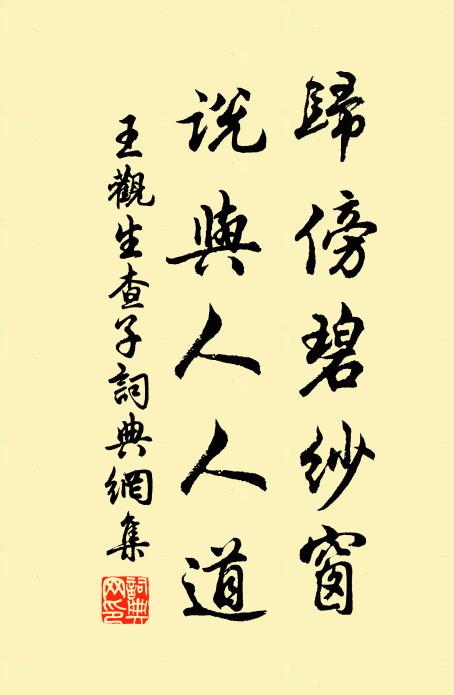 歸傍碧紗窗
説與人人道
王觀生查子詞典網集
詞典网印